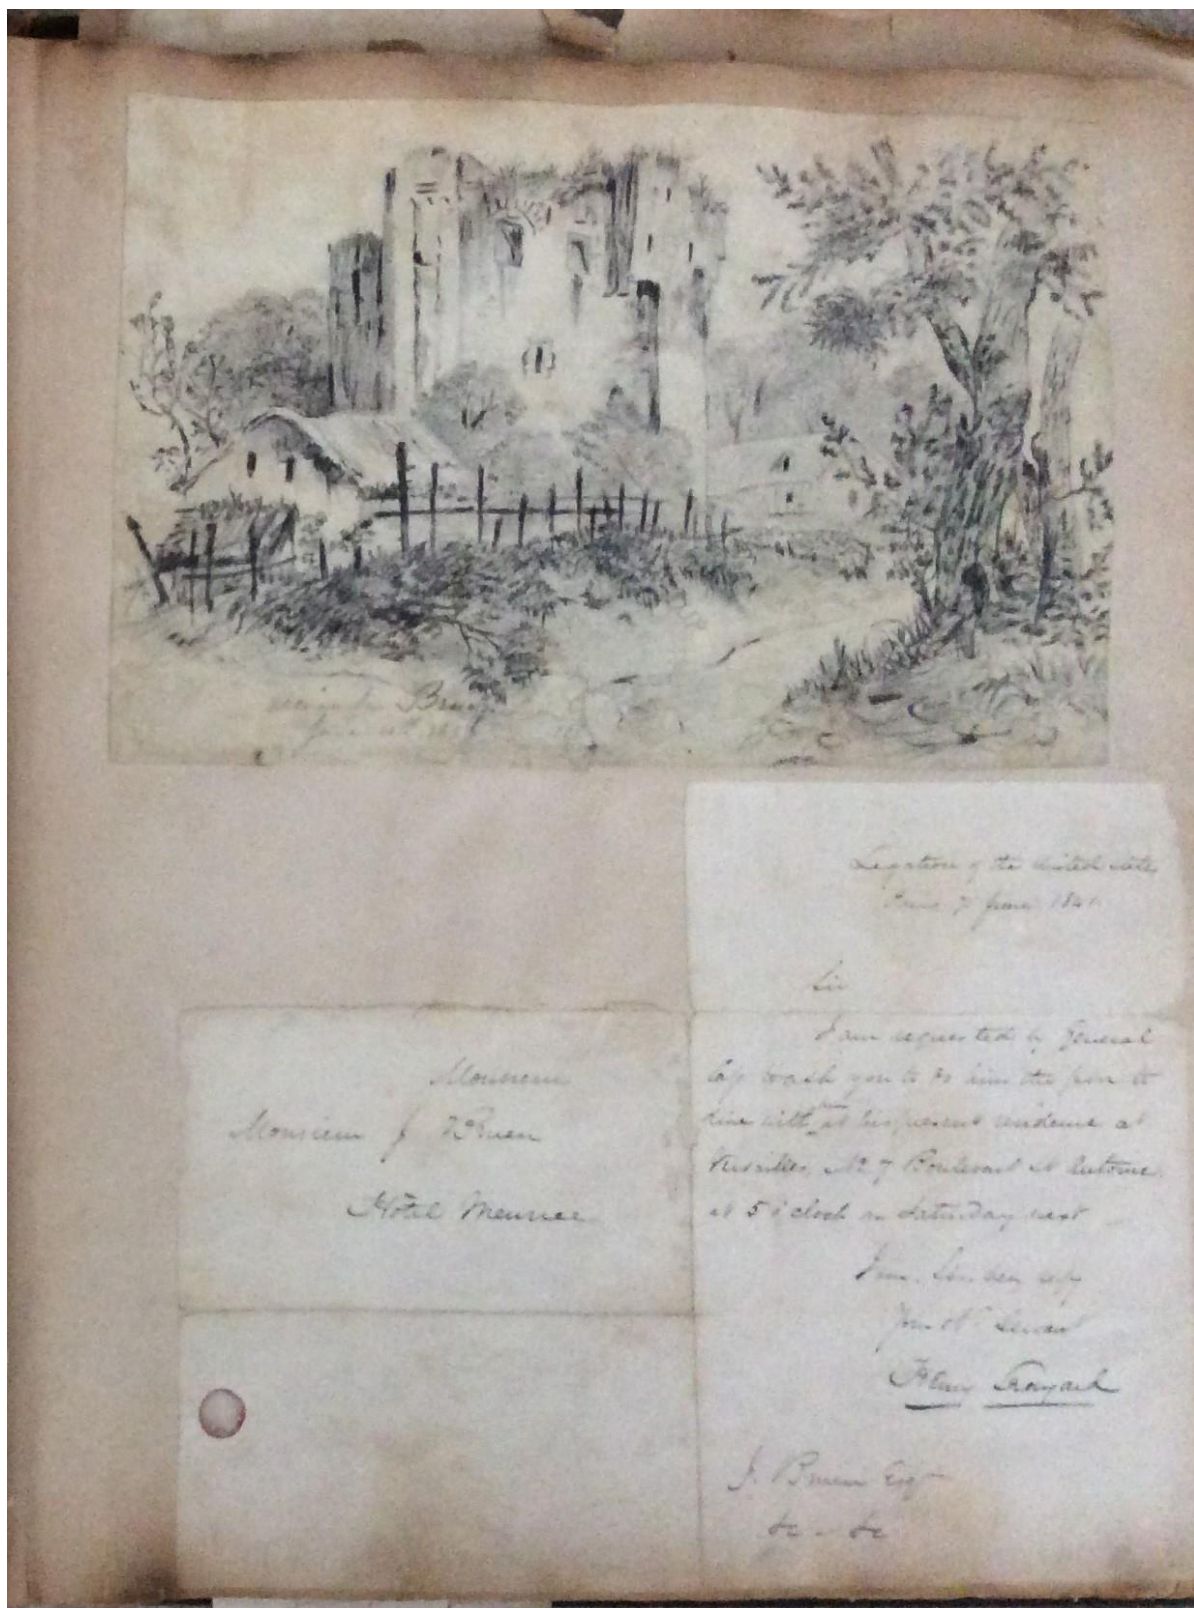 Legation of the United States
Paris 7 June 1841
Sir
I am requested by General
Cass to ask you to do him the favor to
dine with him at his present residence at
Versailles, No 7 Boulevard St Antoine
at 5 o'clock on Saturday next
I am, Sir,
Servant
Henry Ledyard
J. Bruen Esqr
&c &c
Monsieur
Monsieur J Bruen
Hôtel Meurice